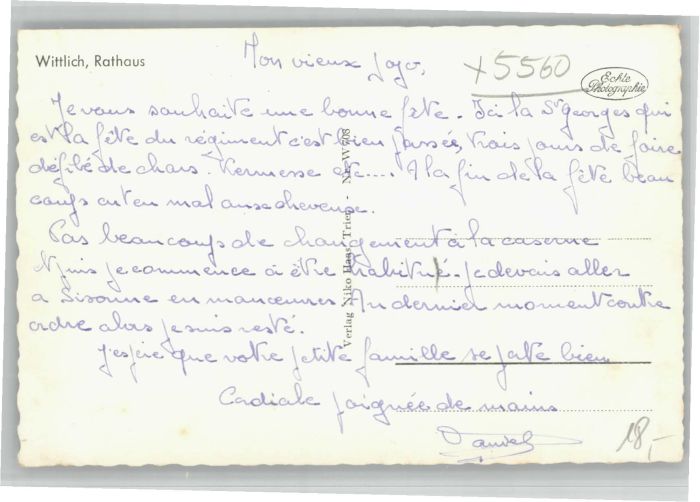 Wittlich, Rathaus
Mon vieux Jojo,
+5560
Echte
Photographie
Je vous souhaite une bonne fête. Ici la St Georges qui
est la fête du régiment c'est bien passée, trois jours de foire
défilé de chars. Kermesse etc.... A la fin de la fête beau
coups ont en mal aux cheveux.
Pas beaucoups de changement à la caserne
je commence à être habitué. Je devais aller
a Sisonne en manœuvres. Au dernier moment contre
ordre alors je suis resté.
J'espère que votre petite famille se porte bien
Cordiale poignée de mains
Daniel
18,-
Verlag Niko Haas, Trier - Nr. W 708